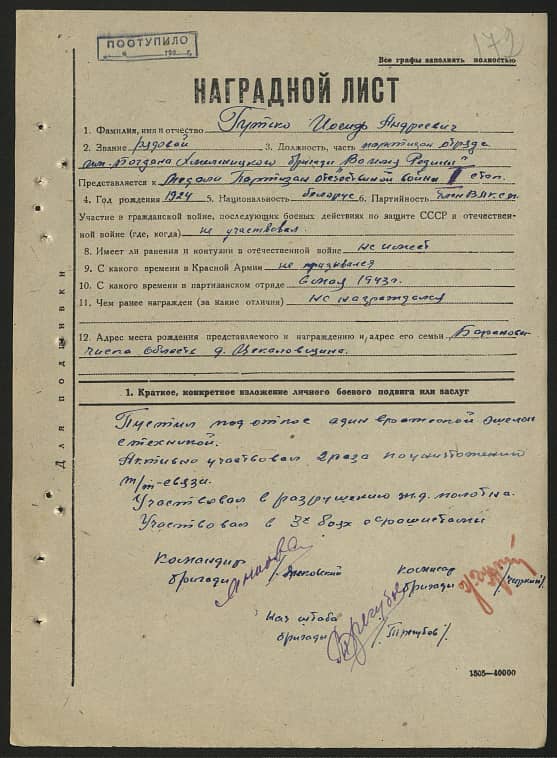 ПОСТУПИЛО
172
Все графы заполнять полностью
НАГРАДНОЙ ЛИСТ
1. Фамилия, имя и отчество Гутско Иосиф Андреевич
2. Звание рядовой 3. Должность, часть партизан отряда
им. Богдана Хмельницкого бригады "За нашу Родину"
Представляется к Медали Партизан отечественной войны II степ.
4. Год рождения 1924 5. Национальность белорус 6. Партийность член ВЛКСМ
Участие в гражданской войне, последующих боевых действиях по защите СССР и отечествен-
ной войне (где, когда) не участвовал
8. Имеет ли ранения и контузии в отечественной войне не имеет
9. С какого времени в Красной Армии не призывался
10. С какого времени в партизанском отряде 1943г.
11. Чем ранее награжден (за какие отличия) не награждался
12. Адрес места рождения представляемого к награждению и адрес его семьи Баранови-
чская область д.
Для подшивки
1. Краткое, конкретное изложение личного боевого подвига или заслуг
Пустил под откос один вражеской эшелон
с техникой.
Активно участвовал 2 раза по уничтожению
т/т-связи.
Участвовал в разрушению ж.д. полотна.
Участвовал в 3х боях с фашистами
Командир
бригады
Комисар
бригады
Нач штаба
бригады /Трегубов/
1505—40000